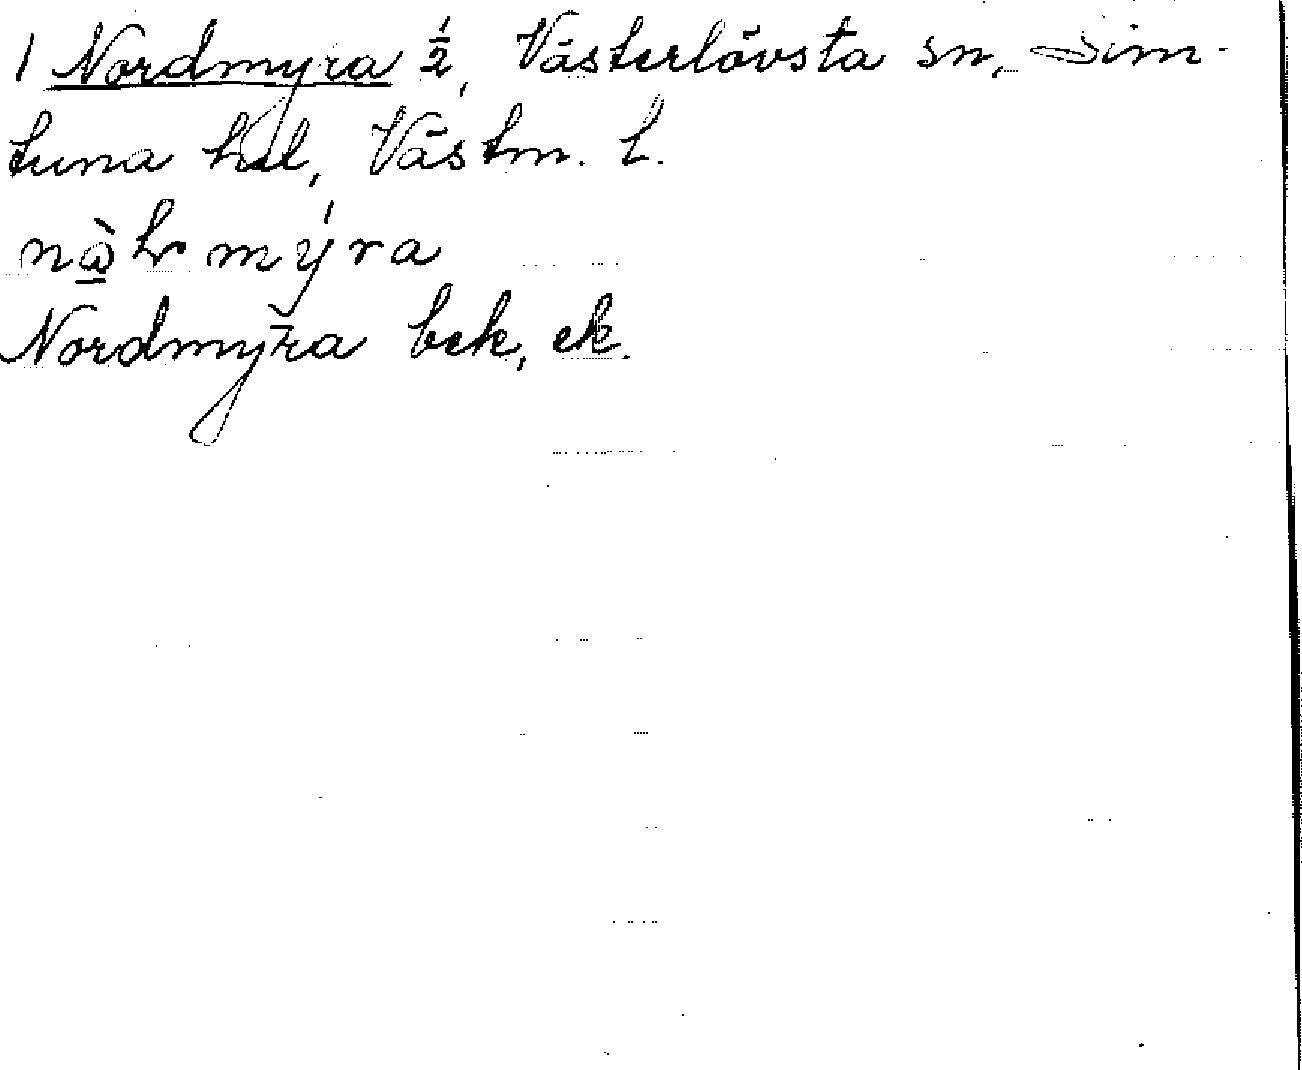 1 Nordmyra ½, Västerlövsta sn, Sim-
tuna hd, Västm. l.
mýra
Nordmyra bek, ek.